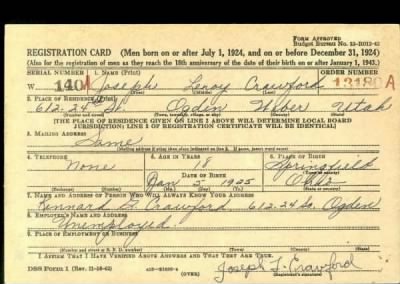 FORM APPROVED
Budget Bureau No. 33-R012-42
REGISTRATION CARD (Men born on or after July 1, 1924, and on or before December 31, 1924)
(Also for the registration of men as they reach the 18th anniversary of the date of their birth on or after January 1, 1943.)
SERIAL NUMBER 1. NAME (Print) ORDER NUMBER
W 140A Joseph Leroy Crawford 13180A
2. PLACE OF RESIDENCE (Print)
612-24 St. Ogden Weber Utah
(Number and street) (Town) (County) (State)
[THE PLACE OF RESIDENCE GIVEN ON LINE 2 ABOVE WILL DETERMINE LOCAL BOARD
JURISDICTION; LINE 2 OF REGISTRATION CERTIFICATE WILL BE IDENTICAL]
3. MAILING ADDRESS
Same
4. TELEPHONE 5. AGE IN YEARS 6. PLACE OF BIRTH
None 18 Springfield
DATE OF BIRTH
Jan 5 1925 Ohio
(Exchange) (Number) (Mo.) (Day) (Yr.) (State or country)
7. NAME AND ADDRESS OF PERSON WHO WILL ALWAYS KNOW YOUR ADDRESS
Crawford 612-24 St. Ogden
8. EMPLOYER'S NAME AND ADDRESS
Unemployed
9. PLACE OF EMPLOYMENT OR BUSINESS
(Number and street or R. F. D. number) (Town) (County) (State)
I AFFIRM THAT I HAVE VERIFIED ABOVE ANSWERS AND THAT THEY ARE TRUE.
DSS Form 1 (Rev. 11-16-42) (OVER) Joseph L. Crawford